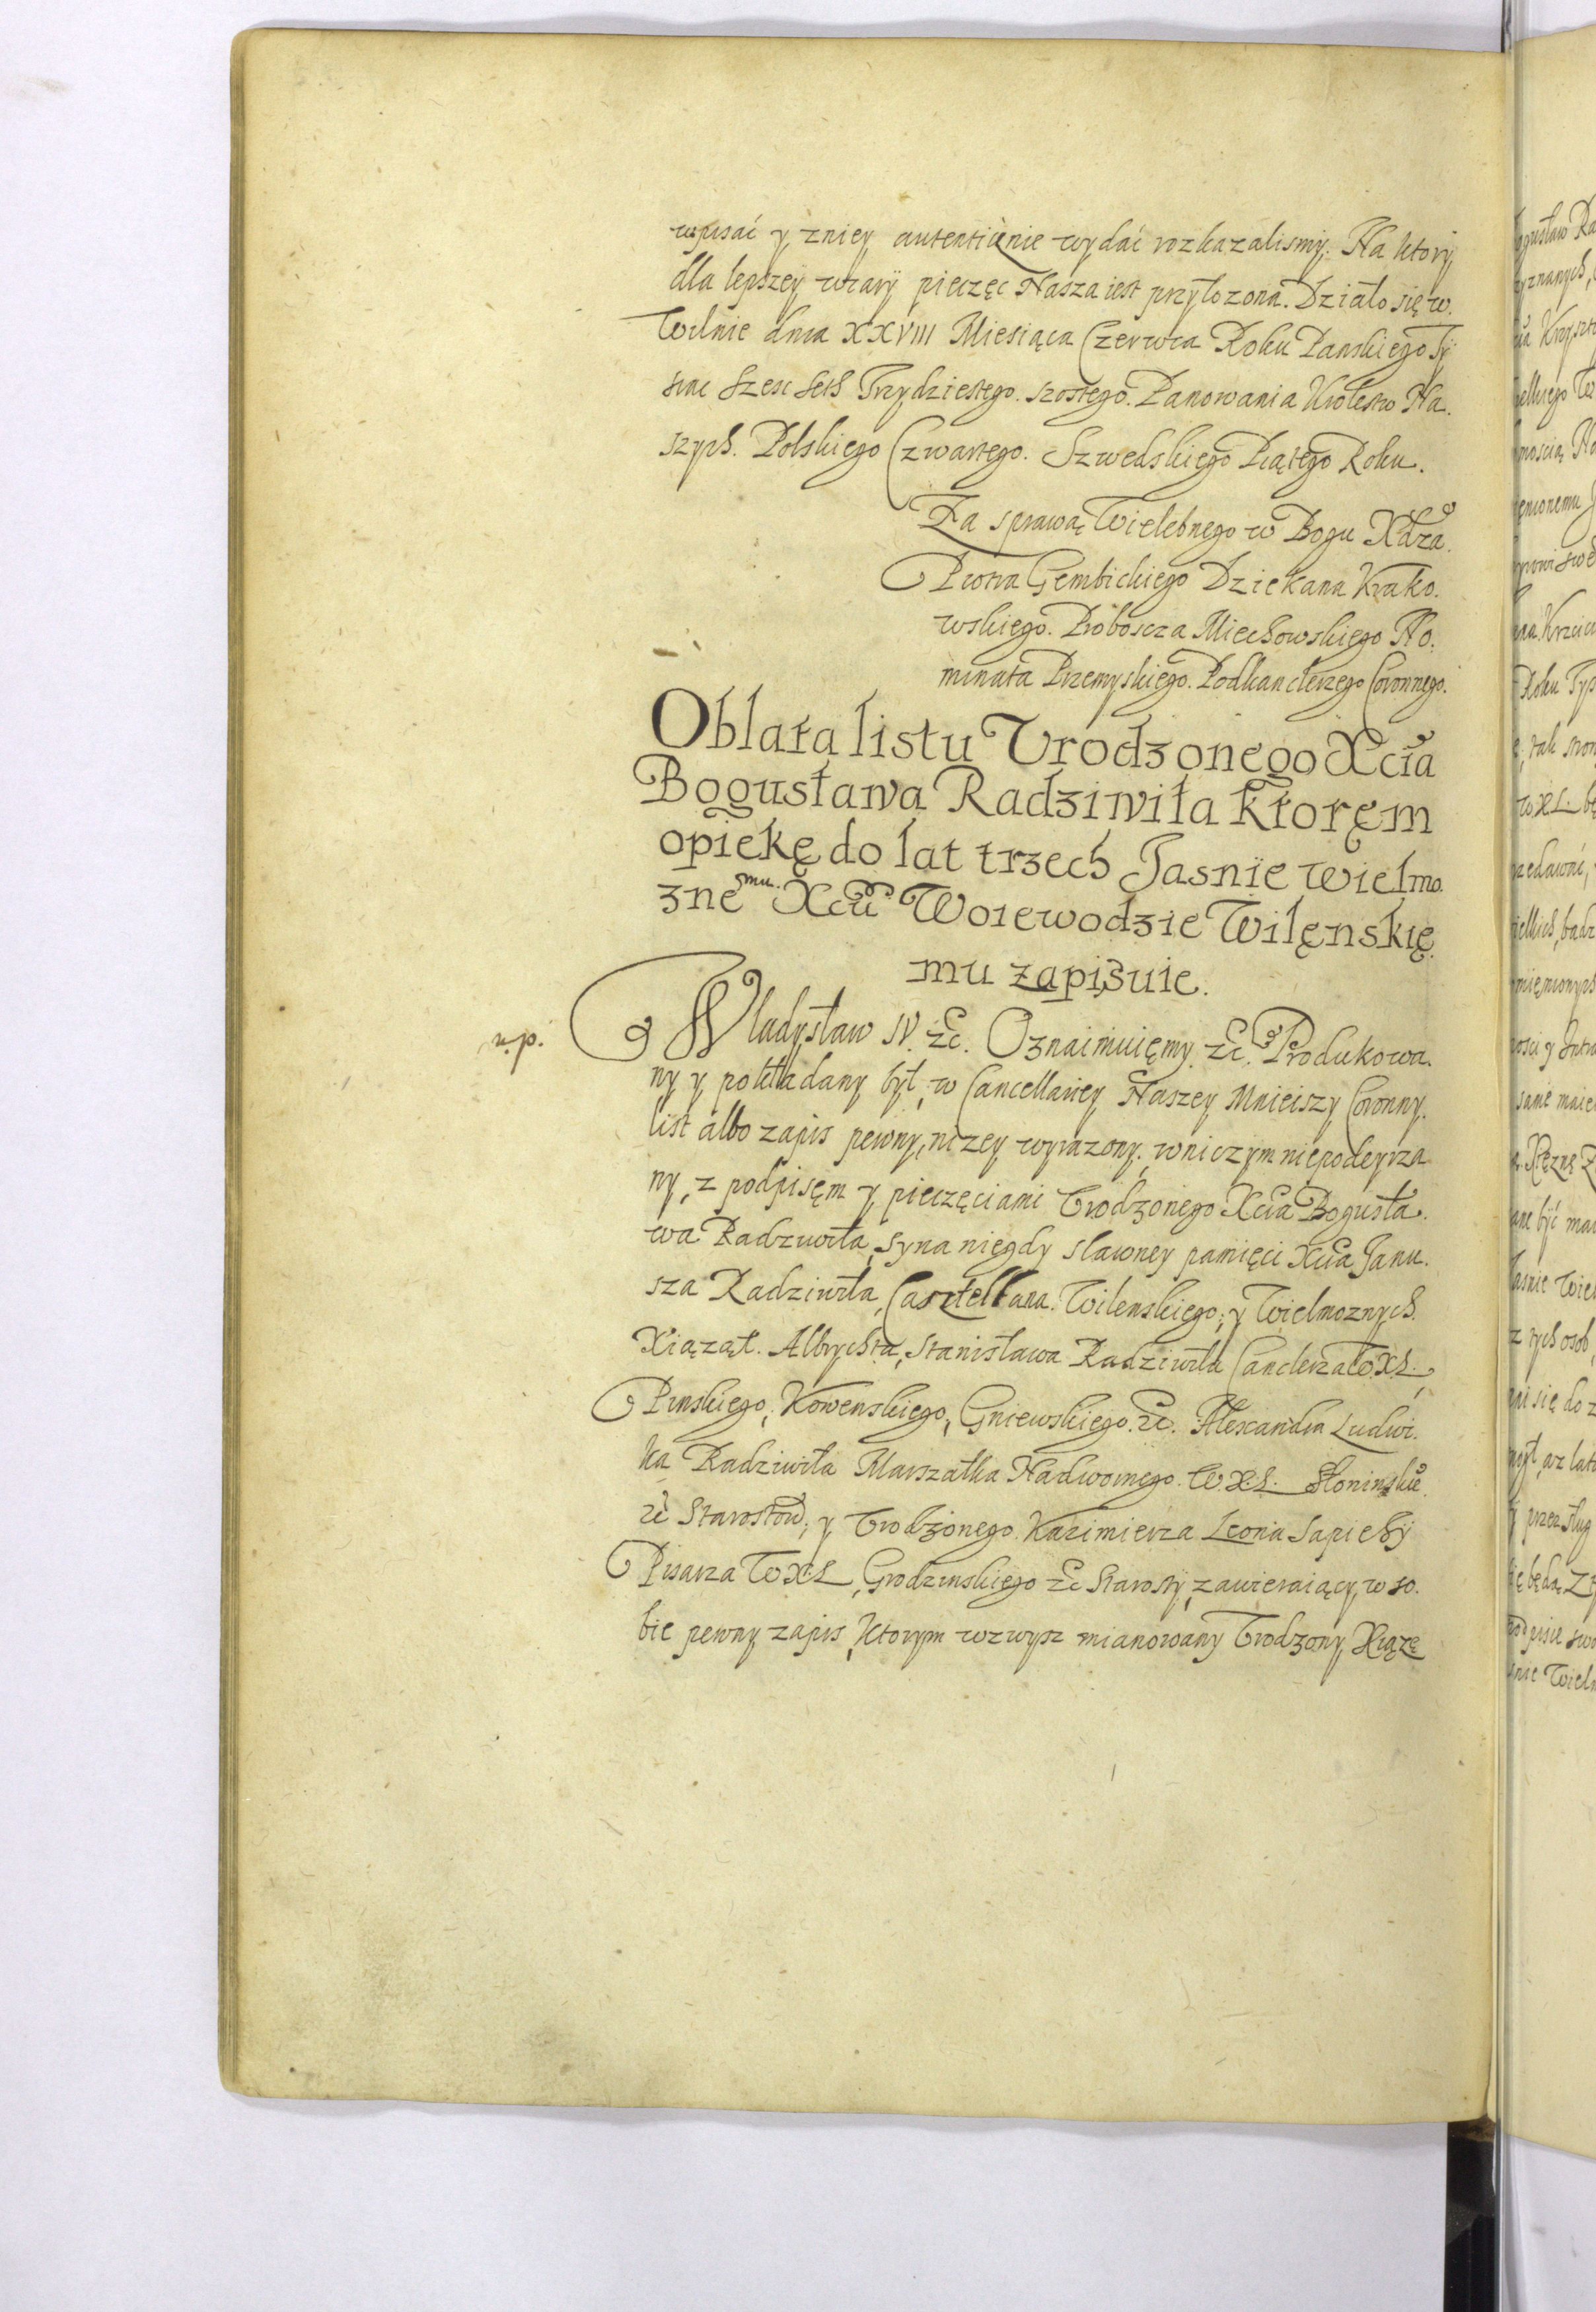 wpisać y zniey autenticznie wydać rozkazalismy. Na ktory
dla lepszey wiary pieczęc Nasza iest przyłozona. Działo się w.
Wilnie dnia XXVIII Miesiąca Czerwca Roku Panskiego Ty
siac Szesc Seth Trzydziestego. szostego. Panowania Krolestw Na.
szych. Polskiego Czwartego. Szwedskiego Piątego Roku.
Za sprawą Wielebnego w Bogu Xdza.
Piotra Gembickiego Dziekana Krako.
wskiego. Proboscza Miechowskiego No.
minata Przemyskiego. Podkanclerzego Coronnego.
Oblata listu Urodzonego Xcia
Bogusława Radziwiła ktoręm
opiekę do lat trzech Jasnie wielmo.
znemu. Xciu Woiewodzie Wilęnskię.
mu zapisuie.
n.p.
Wladysław IV. &c. Oznaimuięmy &c. Produkowa.
ny y pokładany był, w Cancellariey Naszey Mnieiszy Coronny.
list albo zapis pewny, nizey wyrazony, wniczym niepodeyrza
ny, z podpisęm y pieczęciami Urodzonego Xcia Bogusła.
wa Radziwiła, syna niegdy slawney pamięci Xcia Janu.
sza Radziwiła, Casztellana. Wilenskiego, y Wielmoznych.
Xiąząt. Albrychta, Stanisława Radziwiła Canclerza W.X.L.,
Pinskiego, Kowenskiego, Gniewskiego. &c. Alexandra Ludwi.
ka Radziwiła Marszałka Nadwornego. W.X.L. Słoninskie.
&c Starostow, y Urodzonego Kazimierza Leona Sapiehy
Pisarza W.X.L, Grodzinskiego &c Starosty, zawieraiący, w so.
bie pewny zapis, Ktorym wzwysz mianowany Urodzony Xiązę